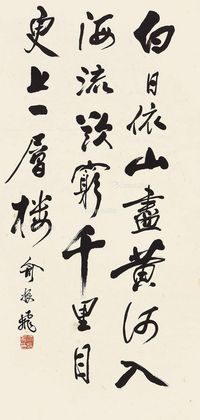 白日依山盡黄河入
海流欲窮千里目
更上一層楼
俞振飛